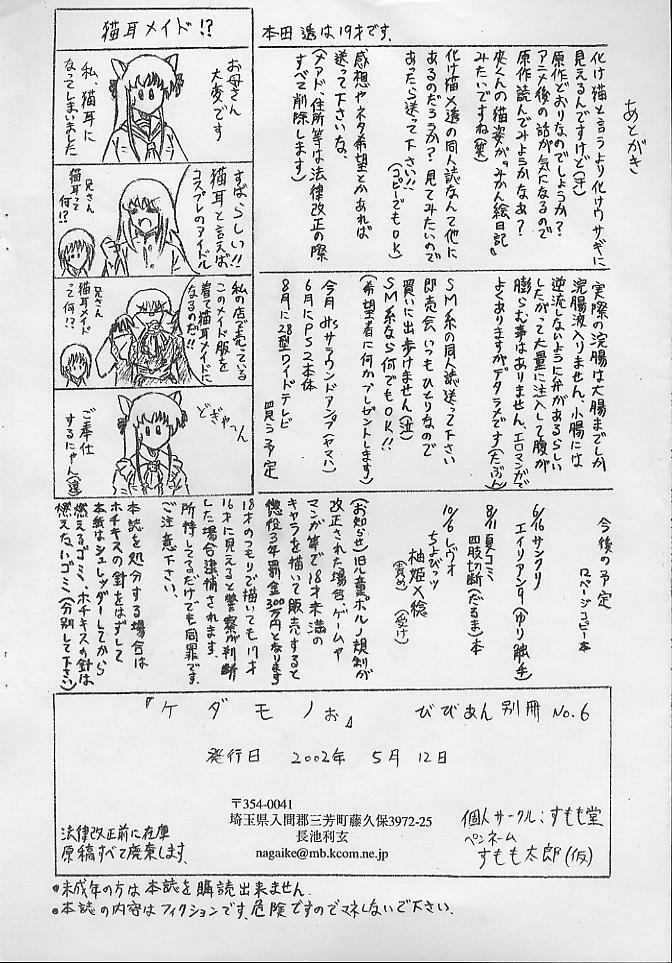 あとがき
化け猫と言うより化けウサギに
見えるんですけど(汗)
原作どおりなのでしょうか?
アニメ後の話が気になるので
原作読んでみようかなぁ?
夾くんの猫姿が『みかん絵日記』
みたいですね(笑)
化け猫×透の同人誌なんて他に
あるのだろうか?見てみたいので
あったら送って下さい!!
(コピーでもOK)
感想やネタ希望とかあれば
送って下さいな。
(メアド、住所等は法律改正の際
すべて削除します)
本田 透は19才です。
猫耳メイド!?
お母さん
大変です
私、猫耳に
なってしまいました
すばらしい!!
猫耳と言えば
コスプレのアイドル
兄さん
猫耳って
何!?
私の店で売っている
このメイド服を
着て猫耳メイドに
なるのだ!!
兄さん
猫耳メイド
って何!?
どぎゃーん
ご奉仕
するにゃん(違)
実際の浣腸は大腸までしか
浣腸液入りません。小腸には
逆流しないように弁があるらしい
したがって大量に注入して腹が
膨らむ事はありません、エロマンガで
よくありますがデタラメです(たぶん)
SM系の同人誌送って下さい
即売会いつもひとりなので
買いに出歩けません(泣)
SM系なら何でもOK!!
(希望者に何かプレゼントします)
今月 5.1chサラウンドアンプ(ヤマハ)
6月にPS2本体
8月に28型ワイドテレビ
買う予定
今後の予定
ロページコピー本
6/16サンクリ
エイリアン9(ゆり触手)
8/11夏コミ
四肢切断(だるま)本
10/6レヴォ
ちょびッツ
柚姫×稔
(責め)(受け)
(お知らせ)児童ポルノ規制が
改正された場合、ゲームや
マンガ等で18才未満の
キャラを描いて販売すると
懲役3年罰金300万円となります
18才のつもりで描いても17才
16才に見えると警察が判断
した場合逮捕されます。
所持してるだけでも同罪です。
ご注意下さい。
本誌を処分する場合は
ホチキスの針をはずして
本紙はシュレッダーしてから
燃えるゴミ、ホチキスの針は
燃えないゴミ(分別して下さい)
『ケダモノぉ』 びびあん別冊 No.6
発行日 2002年 5月12日
〒354-0041
埼玉県入間郡三芳町藤久保3972-25
長池利玄
nagaike@mb.kcom.ne.jp
個人サークル:すもも堂
ペンネーム
すもも太郎(仮)
法律改正前に在庫
原稿すべて廃棄します。
●未成年の方は本誌を購読出来ません。
●本誌の内容はフィクションです、危険ですのでマネしないで下さい。